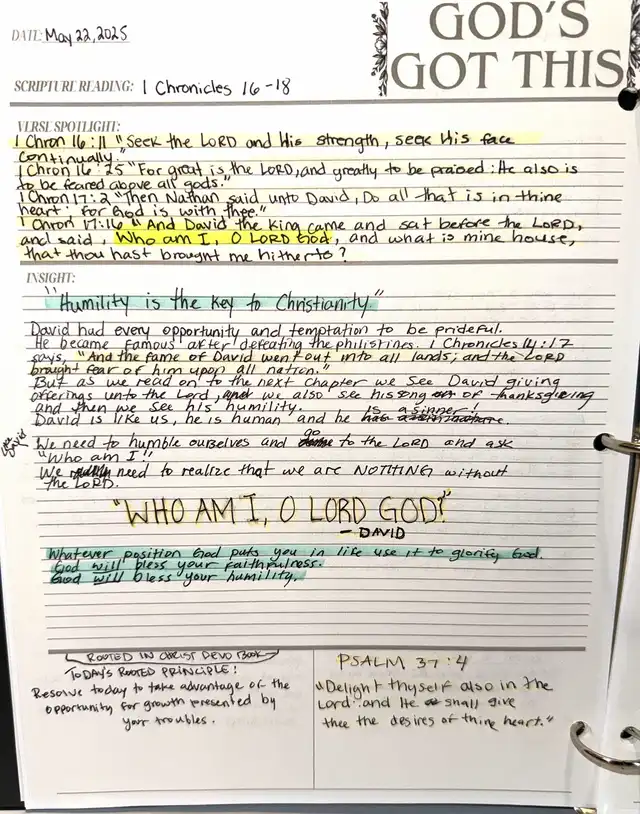 DATE: May 22, 2025
GOD'S
GOT THIS
SCRIPTURE READING: 1 Chronicles 16-18
VERSE SPOTLIGHT:
1 Chron 16:11 "Seek the LORD and His strength, seek His face
continually."
1 Chron 16:25 "For great is the LORD, and greatly to be praised: He also is
to be feared above all gods."
1 Chron 17:2 "Then Nathan said unto David, Do all that is in thine
heart; for God is with thee."
1 Chron 17:16 "And David the king came and sat before the LORD,
and said, Who am I, O LORD God, and what is mine house,
that thou hast brought me hitherto?
INSIGHT:
"Humility is the key to Christianity"
David had every opportunity and temptation to be prideful.
He became famous after defeating the philistines. 1 Chronicles 14:17
says, "And the fame of David went out into all lands; and the LORD
brought fear of him upon all nation."
But as we read on to the next chapter we see David giving
offerings unto the Lord, and we also see his song of thanksgiving
and then we see his humility.
David is like us, he is human and he is a sinner!
Like David
We need to humble ourselves and go to the LORD and ask
"Who am I!"
We need to realize that we are NOTHING without
the LORD.
"WHO AM I, O LORD GOD?"
- DAVID
Whatever position God puts you in life use it to glorify God.
God will bless your faithfulness.
God will bless your humility.
ROOTED IN CHRIST DEVO BOOK
TODAY'S ROOTED PRINCIPLE:
Resolve today to take advantage of the
opportunity for growth presented by
your troubles.
PSALM 37:4
"Delight thyself also in the
Lord: and He shall give
thee the desires of thine heart."